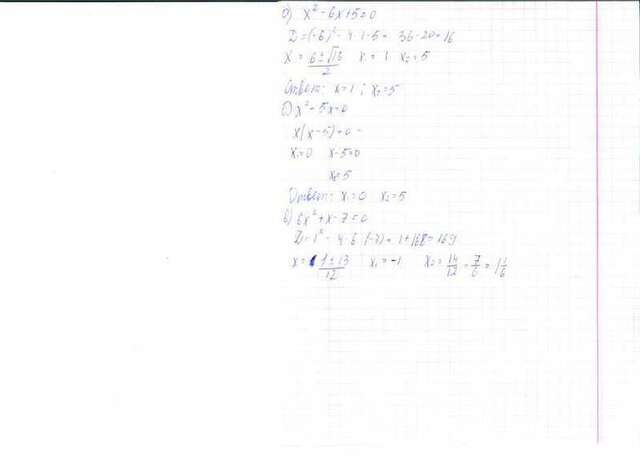 б) x² - 6x + 5 = 0
D = (-6)² - 4·1·5 = 36 - 20 = 16
x = (6 ± √16)/2 x₁ = 1 x₂ = 5
Ответ: x = 1; x₂ = 5
x² - 5x = 0
x(x - 5) = 0
x₁ = 0 x - 5 = 0
x = 5
Ответ: x₁ = 0 x₂ = 5
в) 6x² + x - 7 = 0
D = 1² - 4·6·(-7) = 1 + 168 = 169
x = (1 ± 13)/12 x₁ = -1 x₂ = 14/12 = 7/6 = 1 1/6